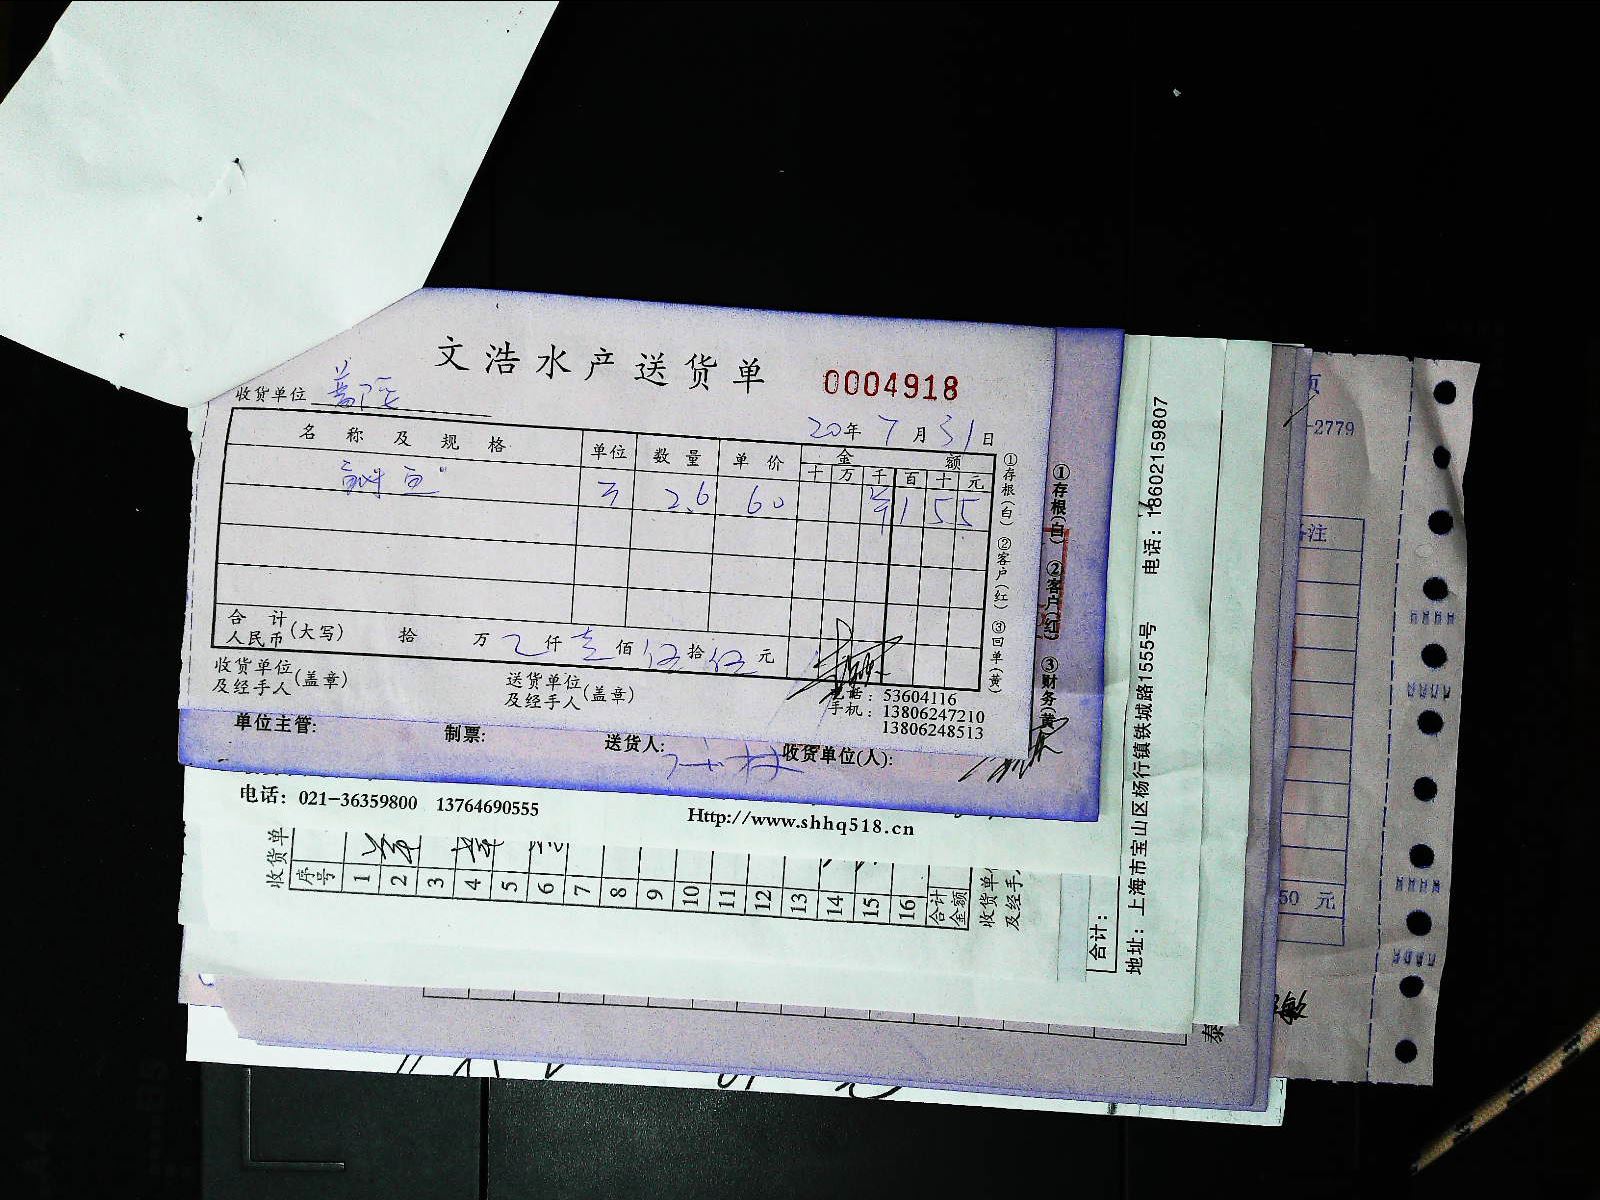 文浩水产送货单
0004918
收货单位
20年7月31日
名称及规格 单位 数量 单价 金额
十 万 千 百 十 元
2.6 60 1 5 5
合计
人民币(大写) 拾 万 乙仟壹佰伍拾伍元
收货单位
及经手人(盖章)
送货单位
及经手人(盖章)
电话：53604116
手机：13806247210
13806248513
①存根(白) ②客户(红) ③回单(黄)
①存根(白) ②客户(红) ③财务(黄)
单位主管: 制票: 送货人: 收货单位(人):
电话：021-36359800 13764690555
Http://www.shhq518.cn
收货单
序号 1 2 3 4 5 6 7 8 9 10 11 12 13 14 15 16 合计金额
收货单
及经手
合计：
地址：上海市宝山区杨行镇铁城路1555号 电话：18602159807
页
-2779
备注
50 元
泰